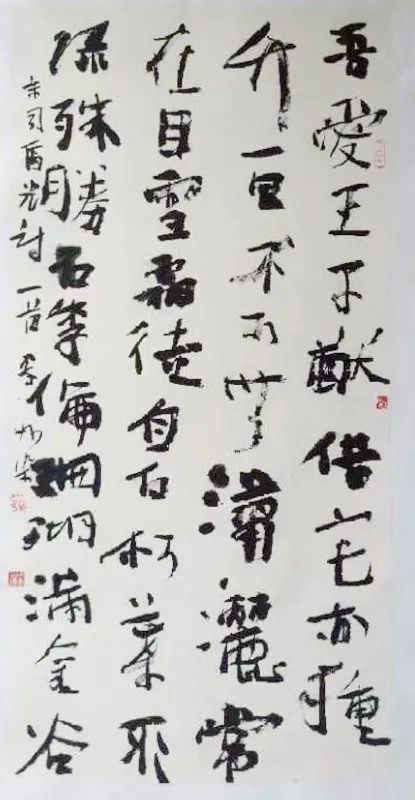 吾愛王子猷借宅亦種
竹一日不可無瀟灑常
在目雪霜徒自白柯葉不
綠殊勝石季倫珊瑚滿金谷
宋司馬光詩一首李